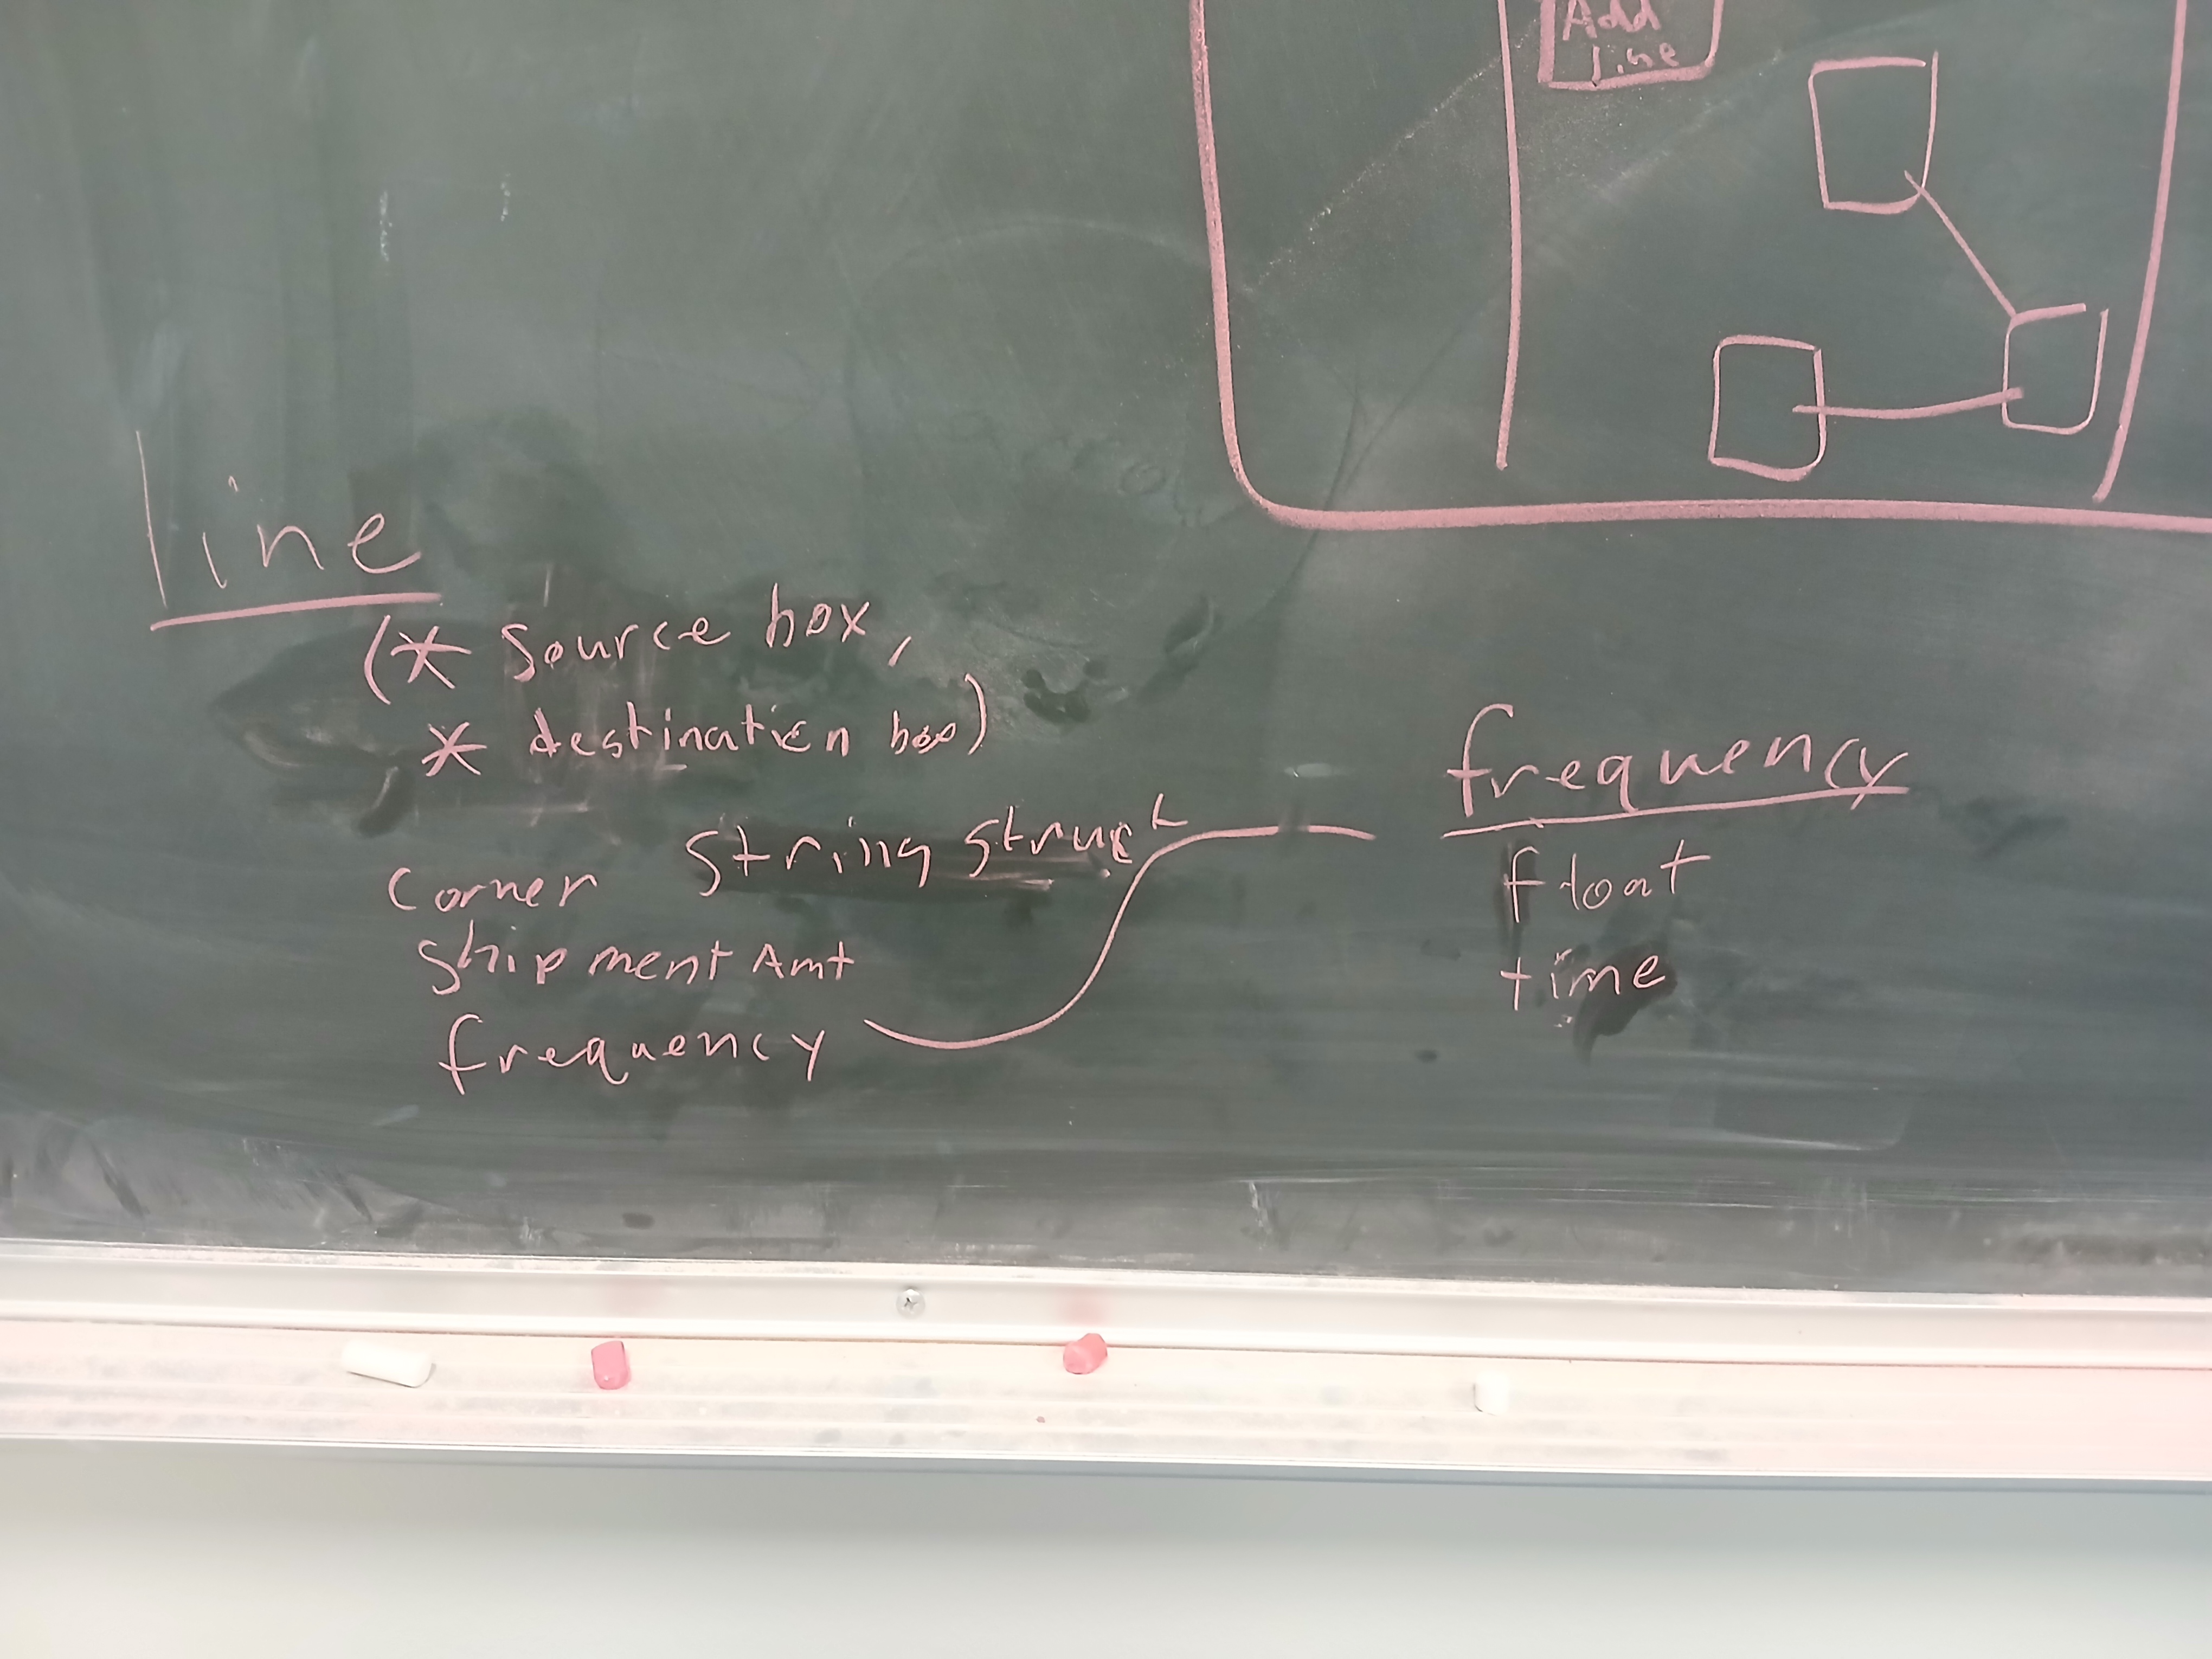 Add
line
line
(* source box,
* destination box)
corner string struct
shipment Amt
frequency
frequency
float
time